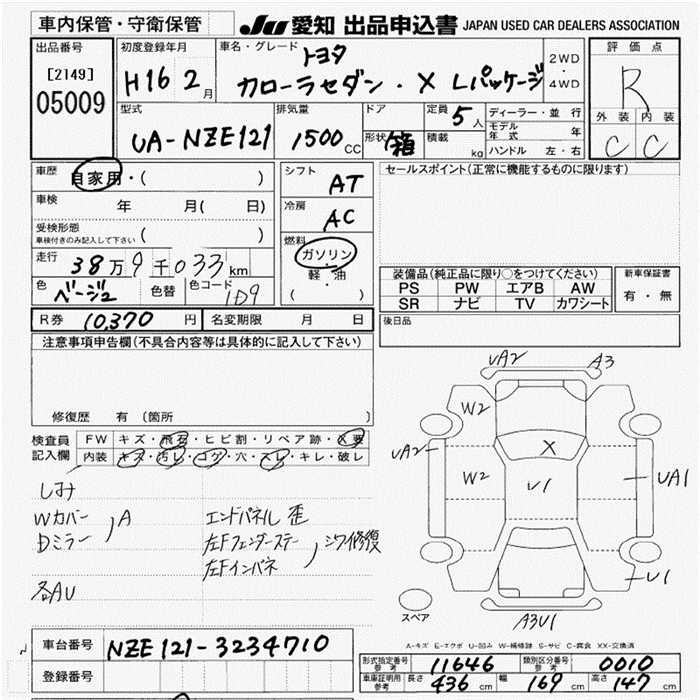 車内保管・守衛保管
JU 愛知 出品申込書 JAPAN USED CAR DEALERS ASSOCIATION
出品番号
[2149]
05009
初度登録年月
H16 2月
車名・グレード
トヨタ
カローラセダン・X Lパッケージ
2WD
・
4WD
評価点
R
外装 内装
C C
型式
UA-NZE121
排気量
1500 CC
ドア
形状 箱
定員 5人
積載 kg
ディーラー・並行
モデル年式 年
ハンドル 左・右
車歴 自家用・( )
車検 年 月( 日)
受検形態
車検付きのみ記入して下さい ( )
走行 38万9千033km
色 ベージュ 色替 色コード 1D9
シフト
AT
冷房
AC
燃料
ガソリン
軽・油
( )
セールスポイント(正常に機能するものに限ります)
装備品(純正品に限り○をつけてください)
PS PW エアB AW
SR ナビ TV カワシート
新車保証書
有・無
R券 10,370 円 名変期限 月 日
後日品
注意事項申告欄(不具合内容等は具体的に記入して下さい)
修復歴 有 (箇所 )
検査員
記入欄
FW キズ・飛石・ヒビ割・リペア跡・X要
内装 キズ・汚レ・コゲ・穴・スレ・キレ・破レ
しみ
Wカバー
Dミラー
A
各AU
エンドパネル 歪
左Fフェンダーステー
左Fインパネ
シワ修復
UA2
A3
W2
UA2
X
W2
U1
UA1
U1
スペア
A3U1
A-キズ E-エクボ U-凹み W-補修跡 S-サビ C-腐食 XX-交換済
車台番号 NZE121-3234710
登録番号
形式指定番号 参考 11646 類別区分番号 参考 0010
車庫証明用 参考 長さ 436 cm 幅 169 cm 高さ 147 cm